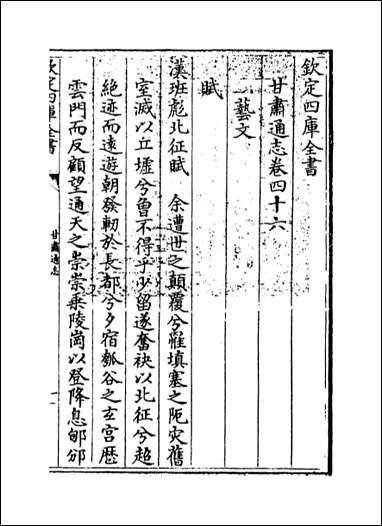 欽定四庫全書
甘肅通志卷四十六
藝文
賦
漢班彪北征賦 余遭世之顛覆兮罹填塞之阨灾舊
室滅以立墟兮曾不得乎少留遂奮袂以北征兮超
絶迹而遠遊朝發軔於長都兮夕宿瓠谷之玄宫歴
雲門而反顧望通天之崇崇乘陵崗以登降息郇邠
甘肅通志
一
欽定四庫全書